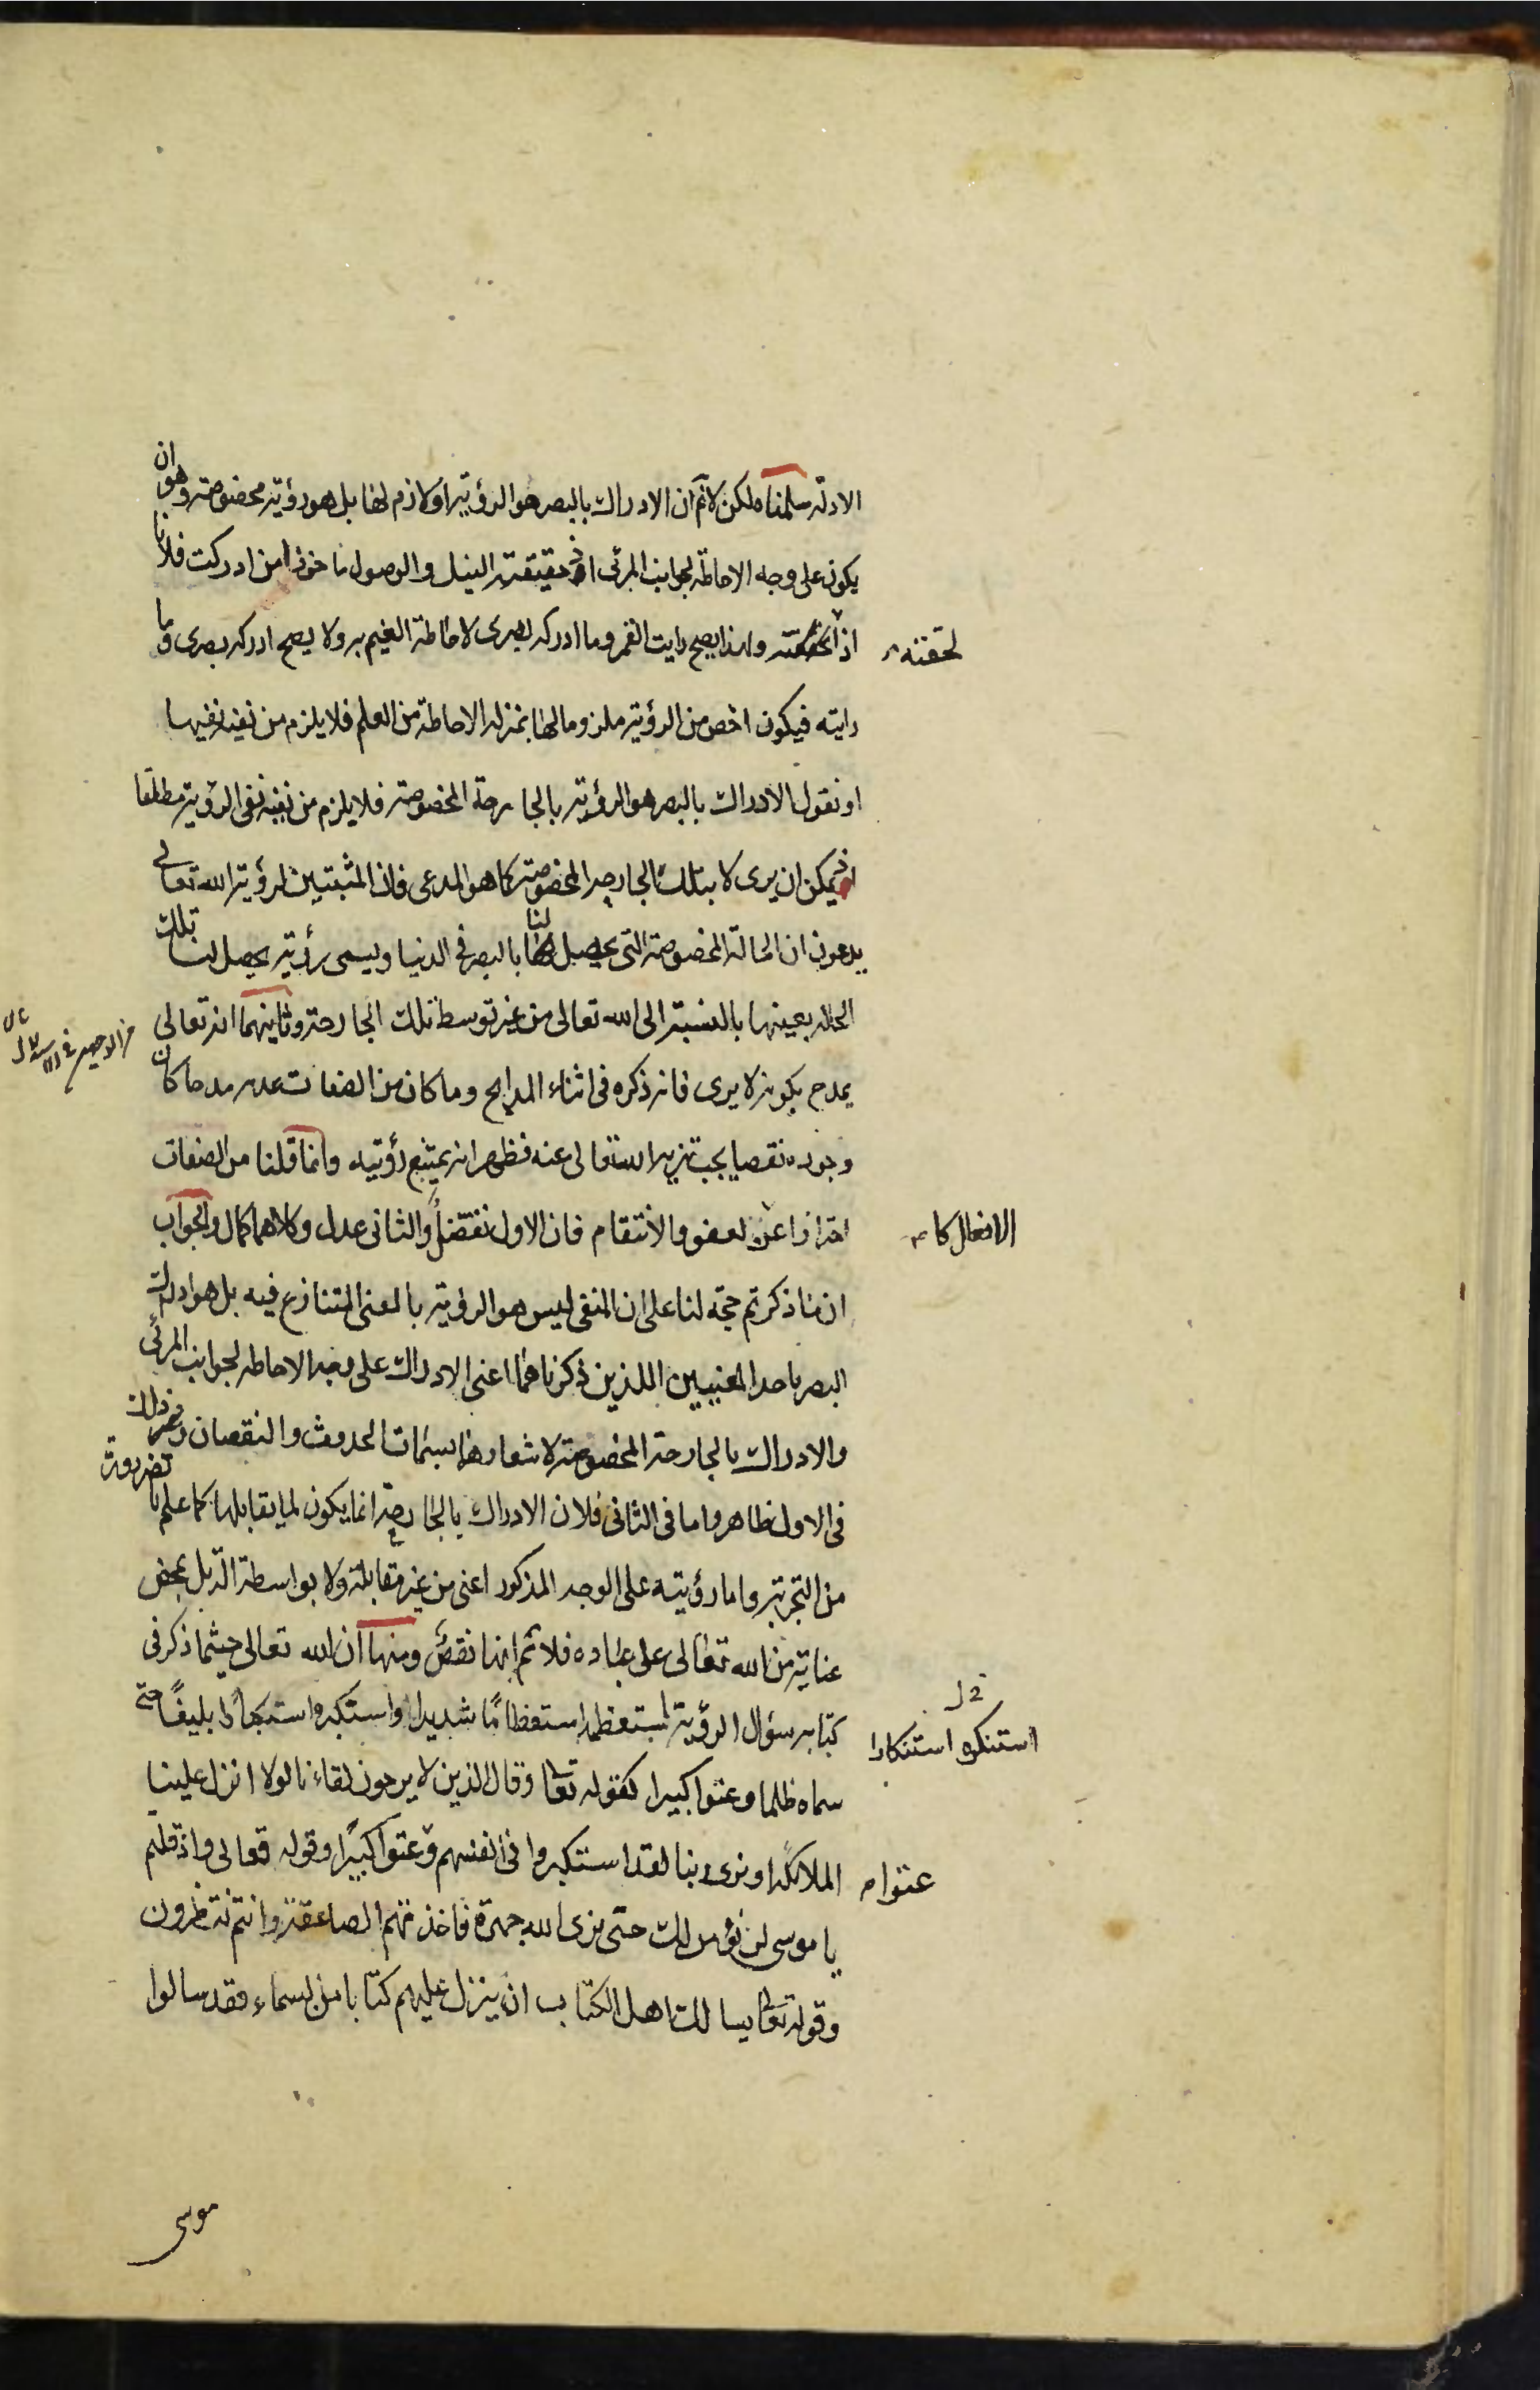 الادلة سلمناه لكن لا نم ان الادراك بالبصر هو الرؤية او لازم لها بل هو رؤية مخصوصة وهو ان
يكون على وجه الاحاطة بجوانب المرئى اذ حقيقته النيل والوصول ماخوذا من ادركت فلانا
اذا لحقته ولهذا يصح رايت القمر وما ادركه بصرى لاحاطة الغيم به ولا يصح ادركه بصرى وما
لحقته
رايته فيكون اخص من الرؤية ملزوما لها بمنزلة الاحاطة من العلم فلا يلزم من نفيه نفيها
او نقول الادراك بالبصر هو الرؤية بالجارحة المخصوصة فلا يلزم من نفيه نفى الرؤية مطلقا
اذ يمكن ان يرى لا بتلك الجارحة المخصوصة كما هو المدعى فان المثبتين لرؤية الله تعالى
يدعون ان الحالة المخصوصة التى يحصل لنا بالبصر فى الدنيا ويسمى رؤية يحصل لنا تلك
الحالة بعينها بالنسبة الى الله تعالى من غير توسط تلك الجارحة وثانيهما انه تعالى
يمدح بكونه لا يرى فانه ذكره فى اثناء المدايح وما كان من الصفات عدمه مدحا كان
وجوده نقصا يجب تنزيه الله تعالى عنه فظهر انه يمتنع رؤيته وانما قلنا من الصفات
احترازا عن لعفو والانتقام فان الاول تفضل والثانى عدل وكلاهما كمال والجواب
الافعال كا
ان ما ذكرتم حجة لنا على ان المنفى ليس هو الرؤية بالمعنى المتنازع فيه بل هو ادراك
البصر باحد المعنيين اللذين ذكرناهما اعنى الادراك على وجه الاحاطة بجوانب المرئى
والادراك بالجارحة المخصوصة لاشعارهما بسمات الحدوث والنقصان وذلك
فى الاول ظاهر واما فى الثانى فلان الادراك بالجارحة انما يكون لما يقابلها كما علم بالضرورة
من التجربة واما رؤيته على الوجه المذكور اعنى من غير مقابلة ولا بواسطة الة بل بمحض
عناية من الله تعالى على عباده فلا نم انها نقص ومنها ان الله تعالى حيثما ذكر فى
كتابه سؤال الرؤية استعظمه استعظامًا شديدا واستكبره استكبارا بليغًا حتى
استنكره استنكارا
سماه ظلما وعتوا كبيرا كقوله تعالى وقال الذين لا يرجون لقاءنا لولا انزل علينا
الملائكة او نرى ربنا لقد استكبروا فى انفسهم وعتوا كبيرًا وقوله تعالى واذ قلتم
عتوا
يا موسى لن نؤمن لك حتى نرى الله جهرة فاخذتهم الصاعقة وانتم تنظرون
وقوله تعالى يسالك اهل الكتاب ان ينزل عليهم كتابا من السماء فقد سالوا
موسى